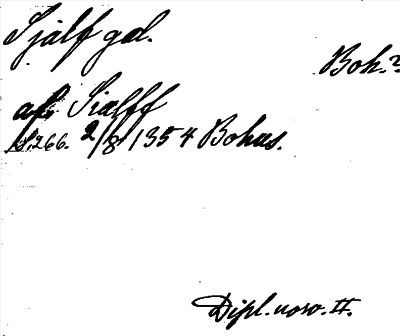 Sjalf gal.
Boh.?
af. Sialff
S. 266. 2/8 1354 Bohus.
Dipl. norv. II.